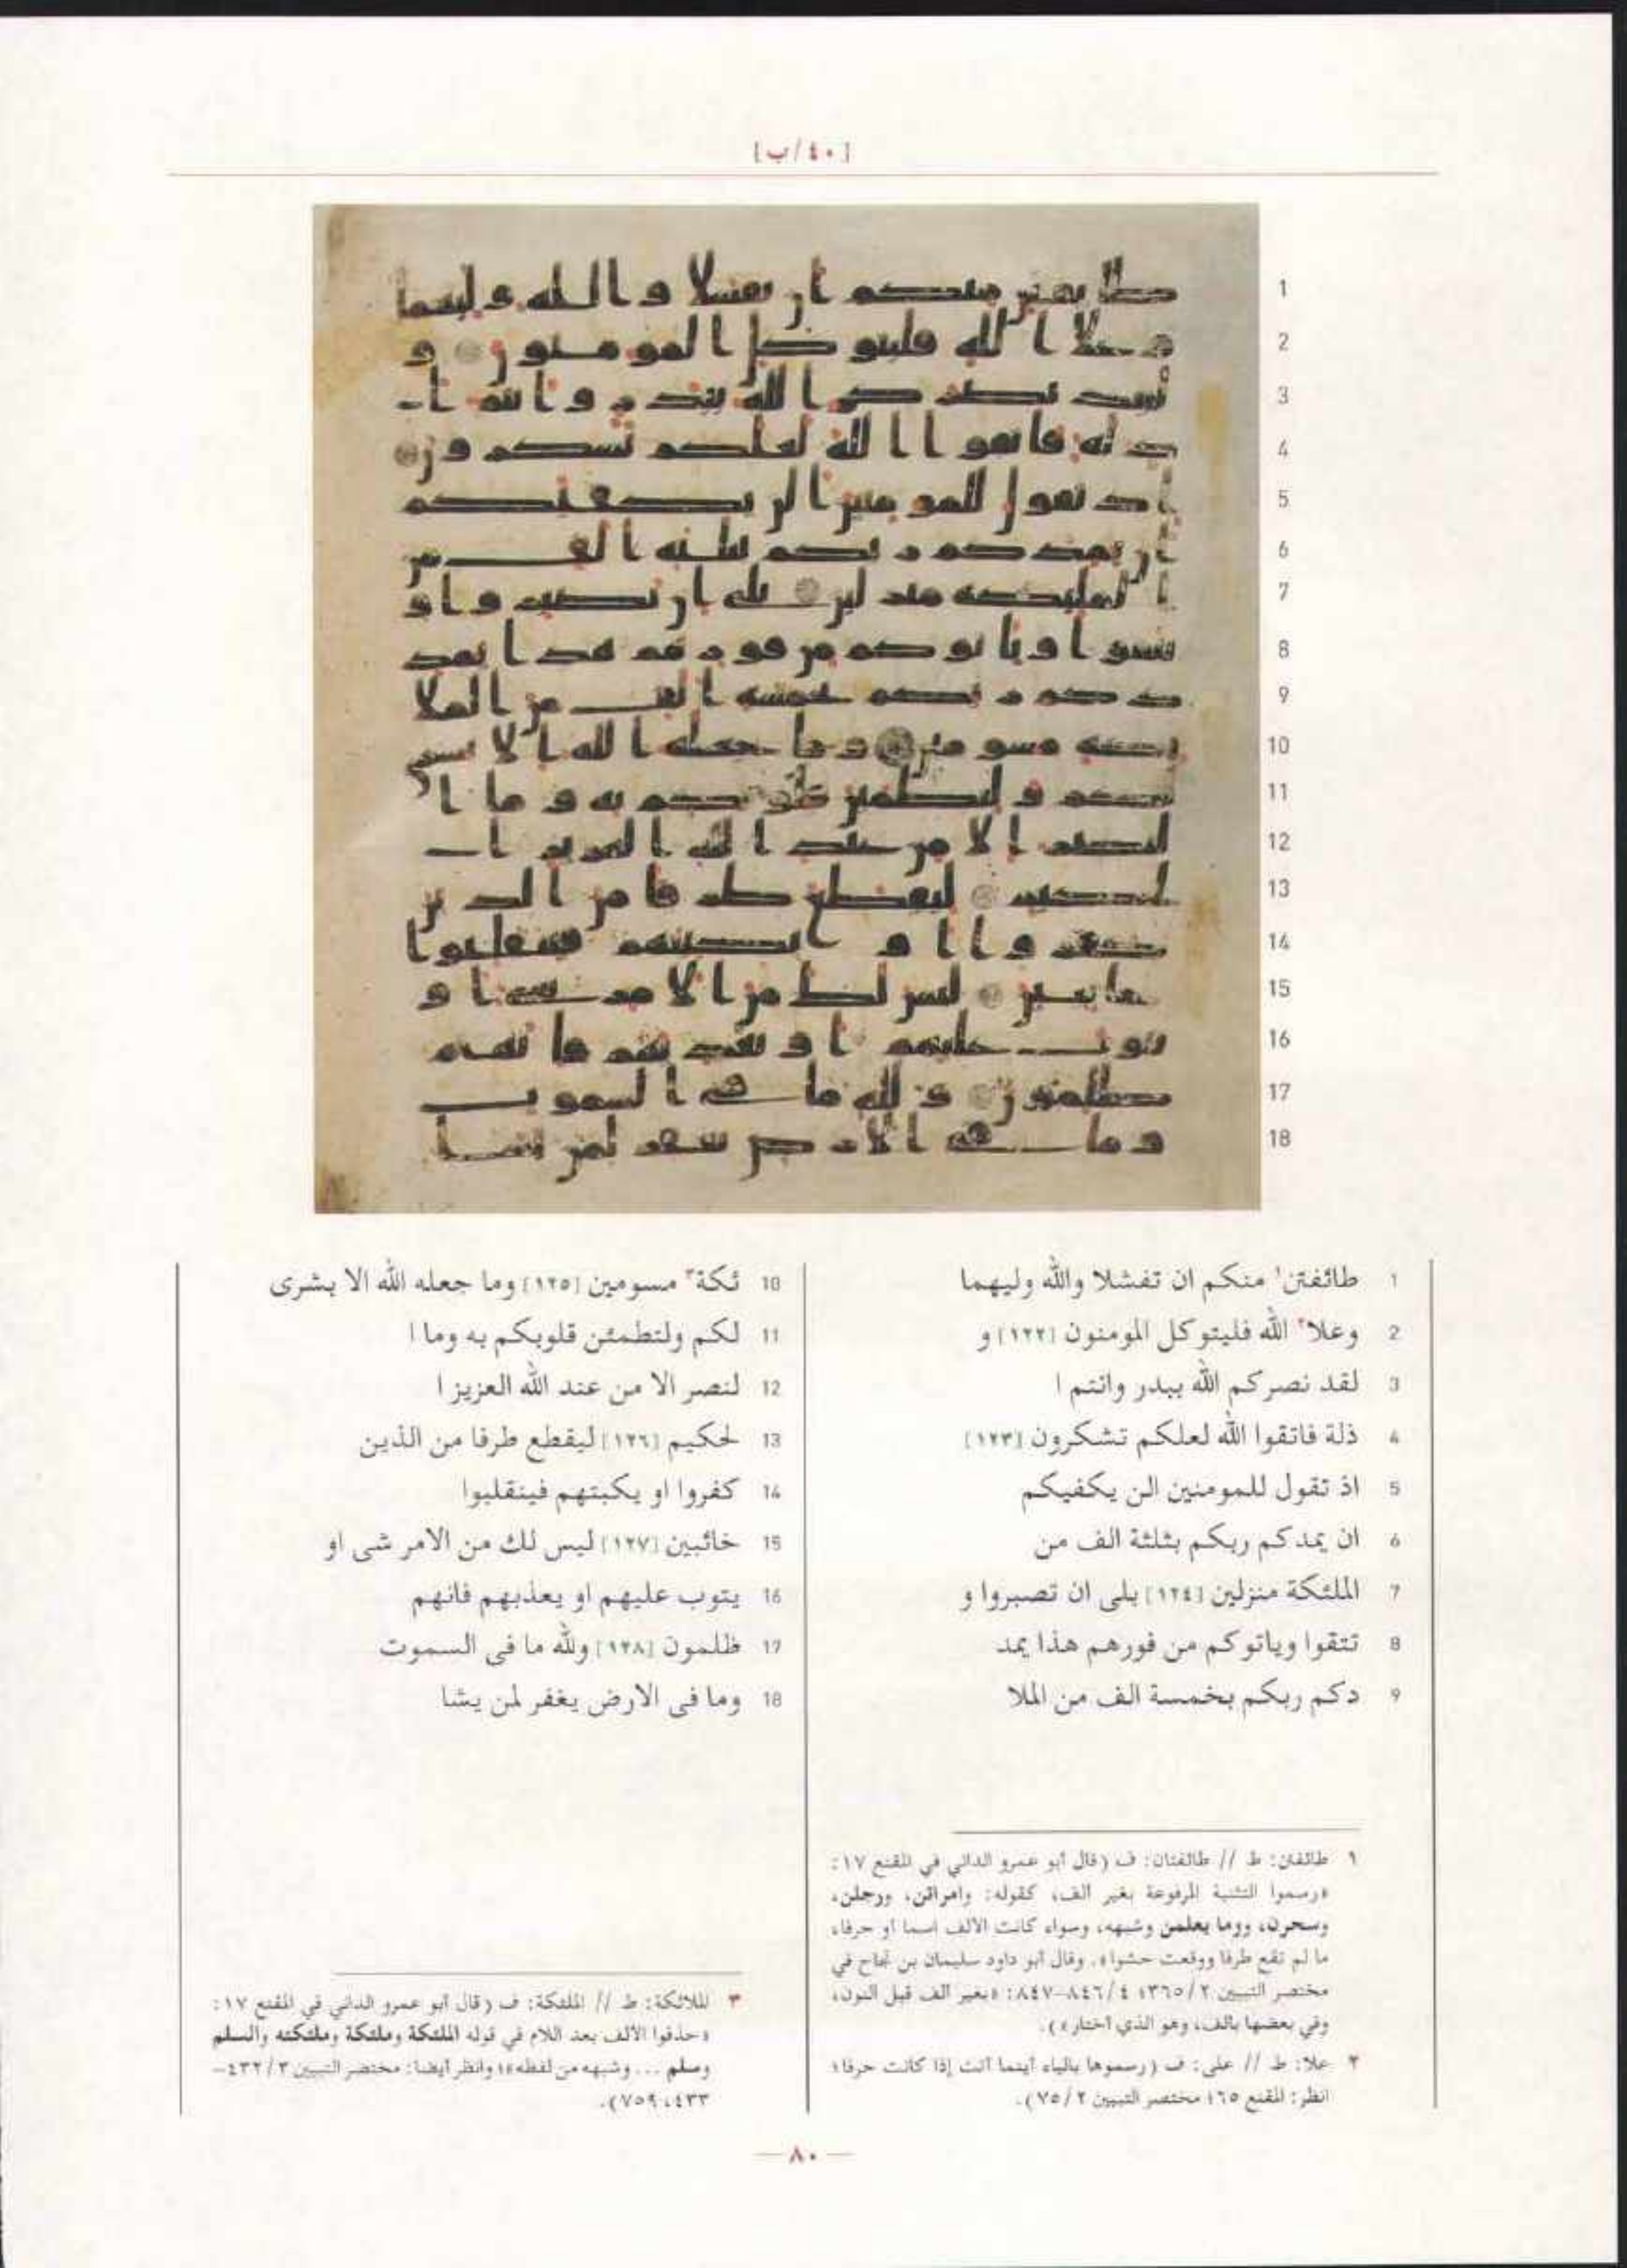 [٤٠/ب]
1
2
3
4
5
6
7
8
9
10
11
12
13
14
15
16
17
18
1 طائفتن١ منكم ان تفشلا والله وليهما
2 وعلا٢ الله فليتوكل المومنون [١٢٢] و
3 لقد نصركم الله ببدر وانتم ا
4 ذلة فاتقوا الله لعلكم تشكرون [١٢٣]
5 اذ تقول للمومنين الن يكفيكم
6 ان يمدكم ربكم بثلثة الف من
7 الملئكة منزلين [١٢٤] بلى ان تصبروا و
8 تتقوا وياتوكم من فورهم هذا يمد
9 دكم ربكم بخمسة الف من الملا
10 ئكة٣ مسومين [١٢٥] وما جعله الله الا بشرى
11 لكم ولتطمئن قلوبكم به وما ا
12 لنصر الا من عند الله العزيز ا
13 لحكيم [١٢٦] ليقطع طرفا من الذين
14 كفروا او يكبتهم فينقلبوا
15 خائبين [١٢٧] ليس لك من الامر شى او
16 يتوب عليهم او يعذبهم فانهم
17 ظلمون [١٢٨] ولله ما فى السموت
18 وما فى الارض يغفر لمن يشا
١ طائفتان: ط // طائفتان: ف (قال أبو عمرو الداني في المقنع ١٧:
«رسموا التثنية المرفوعة بغير ألف، كقوله: وامراتن، ورجلن،
وسحرن، ووما يعلمن وشبهه، وسواء كانت الألف اسما أو حرفا،
ما لم تقع طرفا ووقعت حشوا». وقال أبو داود سليمان بن نجاح في
مختصر التبيين ٢/٣٦٥؛ ٤/٨٤٦-٨٤٧: «بغير ألف قبل النون،
وفي بعضها بألف، وهو الذي أختار»).
٢ علا: ط // على: ف (رسموها بالياء أينما أتت إذا كانت حرفا؛
انظر: المقنع ٦٥؛ مختصر التبيين ٢/٧٥).
٣ الملائكة: ط // الملئكة: ف (قال أبو عمرو الداني في المقنع ١٧:
«حذفوا الألف بعد اللام في قوله الملئكة وملئكة وملئكته والسلم
وسلم ... وشبهه من لفظه»؛ وانظر أيضا: مختصر التبيين ٣/٤٣٢-
٤٣٣، ٧٥٩).
— ٨٠ —